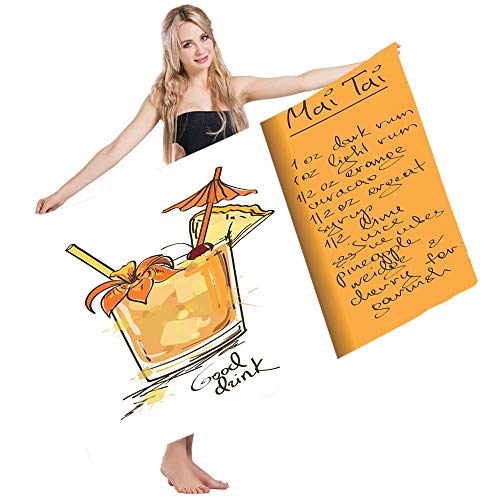 Mai Tai
1 oz dark rum
1 oz light rum
1/2 oz orange
curacao
1/2 oz orgeat
syrup
1/2 lime
juice
ice cubes
pineapple
weidge &
cherry for
garnish
Good
drink